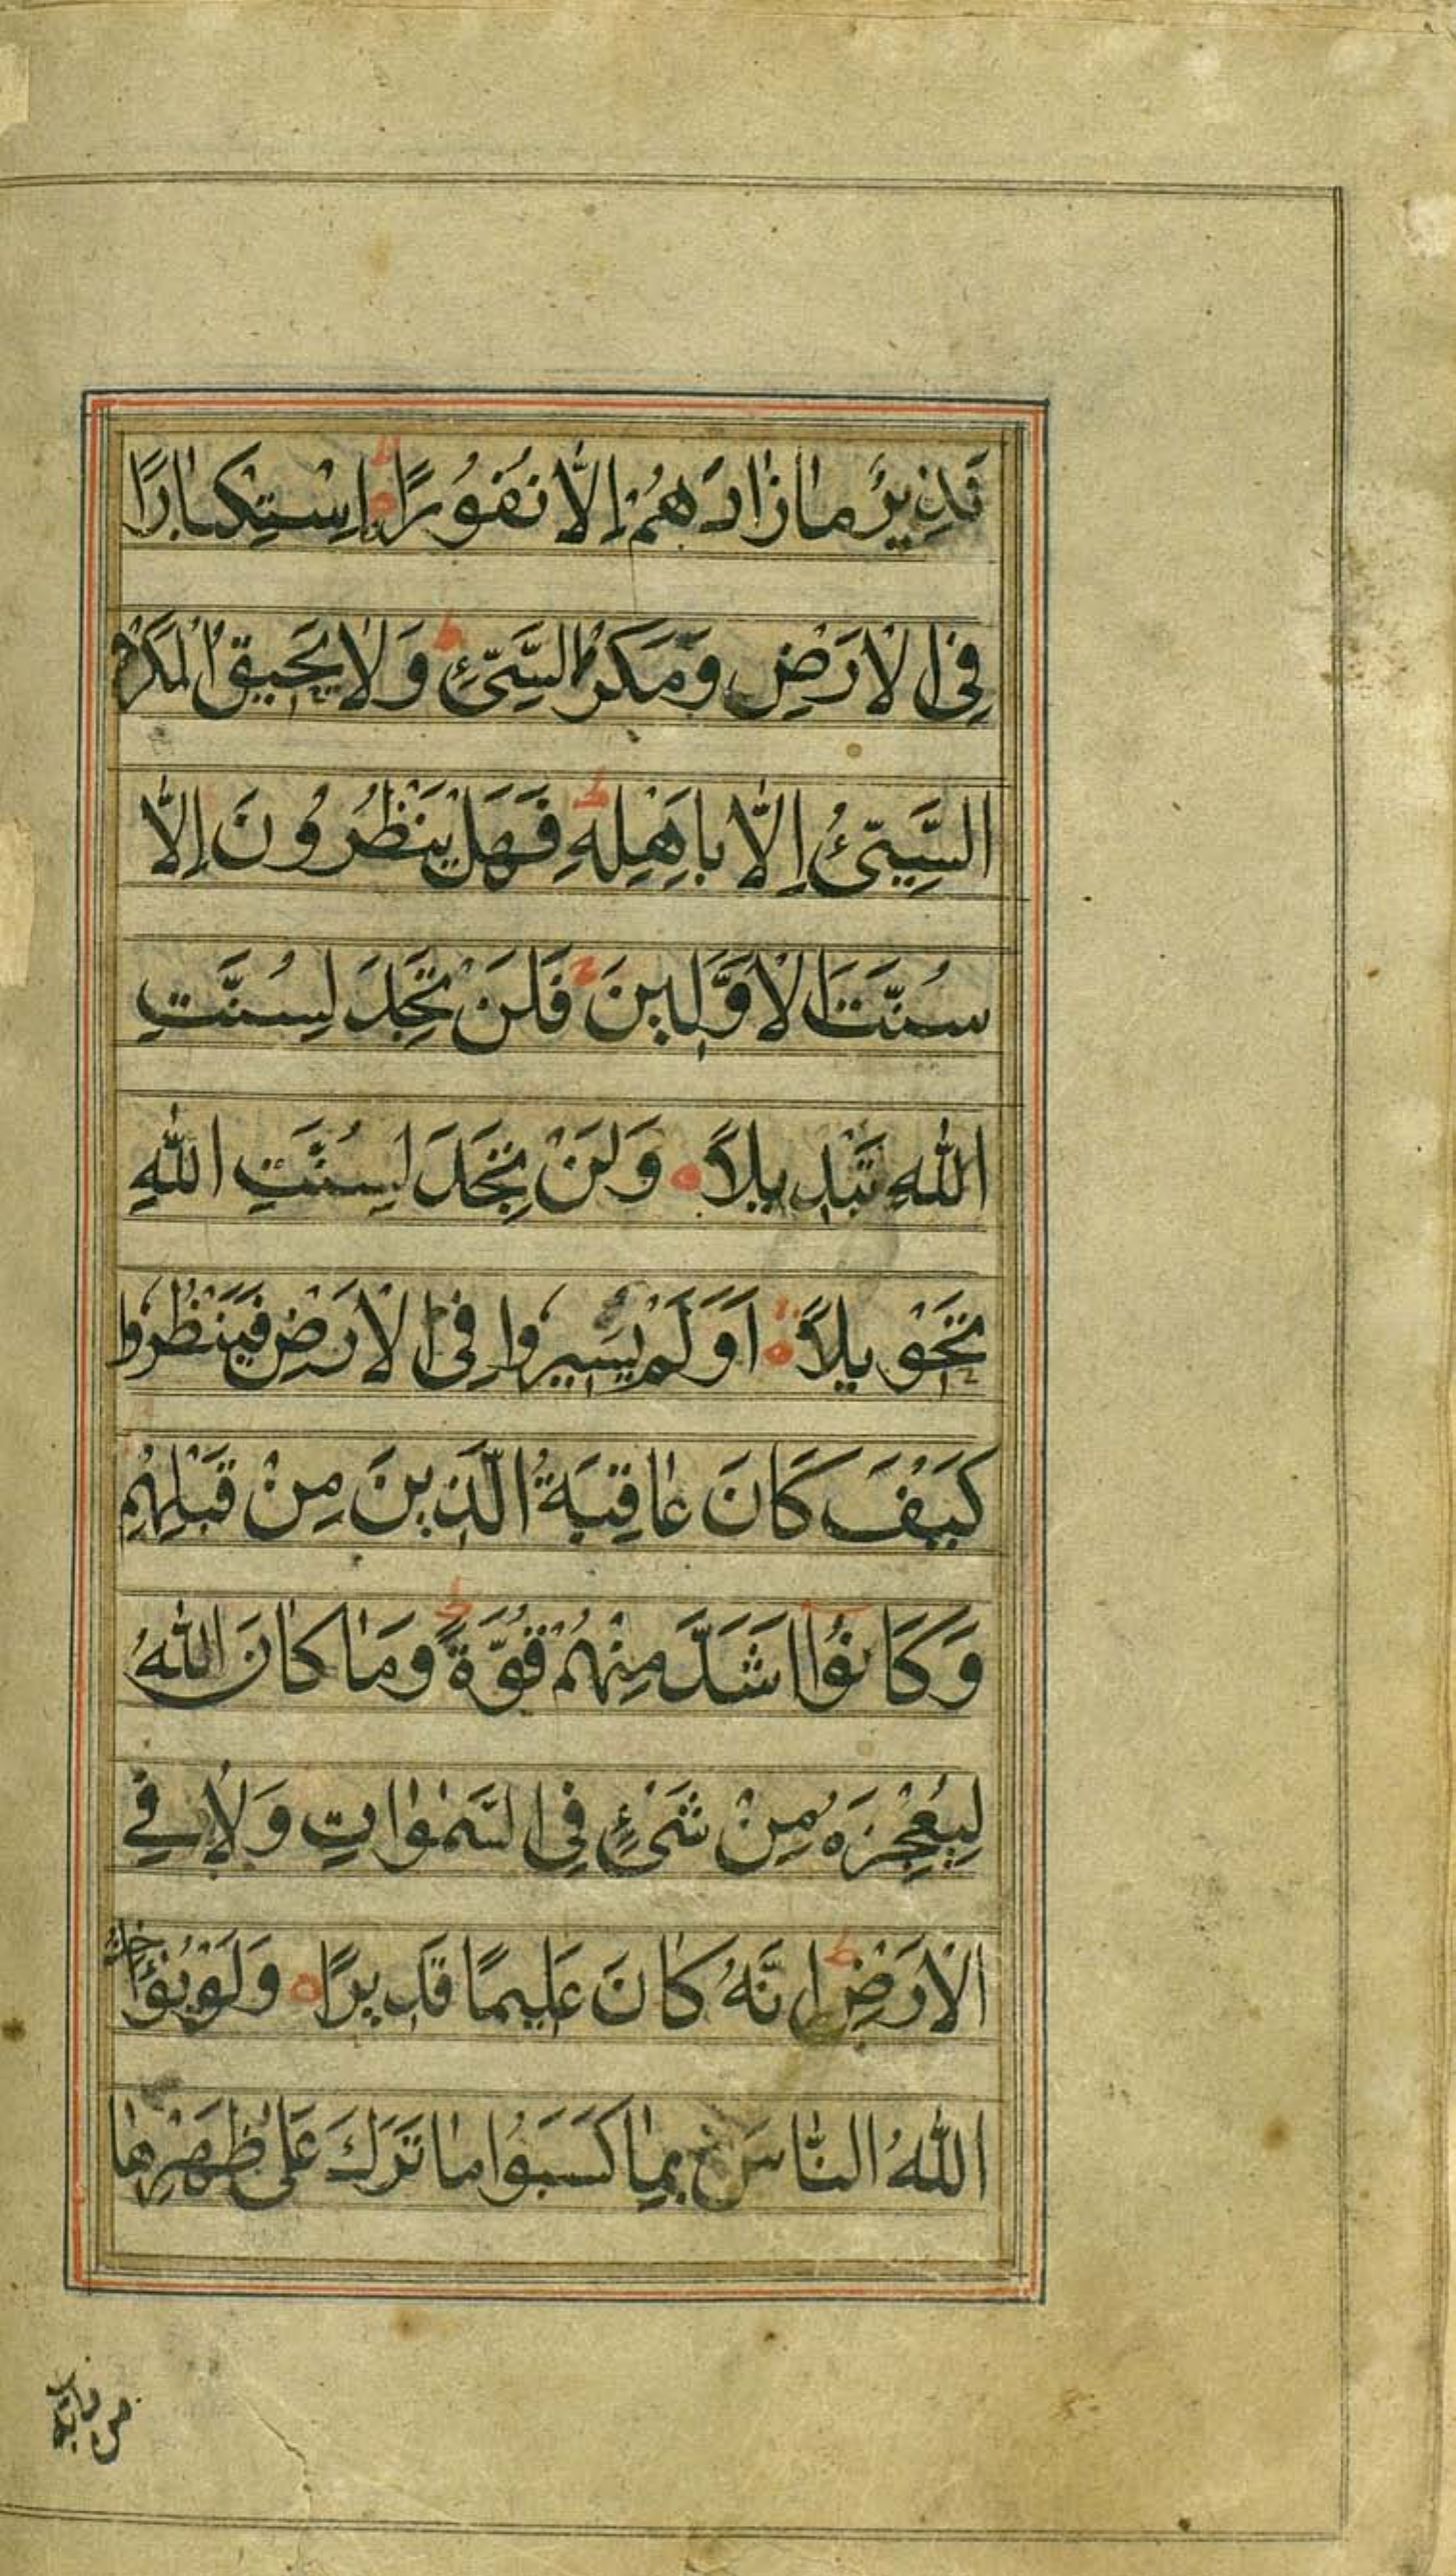 نَذِيرٌ مٰا زٰادَهُمْ إِلَّا نُفُورًا اِسْتِكْبٰارًا
فِي الْاَرْضِ وَمَكْرَ السَّيِّئِ ط وَلٰا يَحِيقُ الْمَكْرُ
السَّيِّئُ اِلَّا بِاَهْلِهِ ط فَهَلْ يَنْظُرُونَ اِلَّا
سُنَّتَ الْاَوَّلِينَ ج فَلَنْ تَجِدَ لِسُنَّتِ
اللّٰهِ تَبْدِيلًا ه وَلَنْ تَجِدَ لِسُنَّتِ اللّٰهِ
تَحْوِيلًا ه اَوَلَمْ يَسِيرُوا فِي الْاَرْضِ فَيَنْظُرُوا
كَيْفَ كَانَ عٰاقِبَةُ الَّذِينَ مِنْ قَبْلِهِمْ
وَكَانُوا اَشَدَّ مِنْهُمْ قُوَّةً ط وَمٰا كٰانَ اللّٰهُ
لِيُعْجِزَهُ مِنْ شَيْءٍ فِي السَّمٰوٰاتِ وَلٰا فِي
الْاَرْضِ ط اِنَّهُ كٰانَ عَلِيمًا قَدِيرًا ه وَلَوْ يُؤٰاخِذُ
اللّٰهُ النّٰاسَ بِمٰا كَسَبُوا مٰا تَرَكَ عَلٰى ظَهْرِهٰا
من دابة